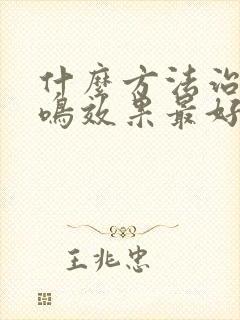 什麽方法治
鳴效果最好
王兆忠